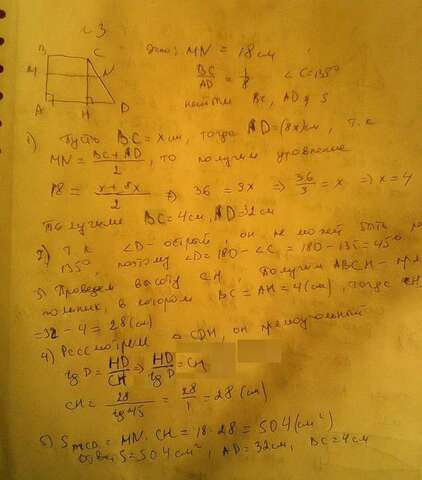 с 3
B
C
M
N
A
H
D
Дано: MN = 18 см
BC/AD = 1/8 ∠C=135°
найти BC, AD, S
1) Пусть BC = x см, тогда AD=(8x)см, т.к
MN = (BC+AD)/2, то получим уравнение
18 = (x+8x)/2 ⇒ 36 = 9x ⇒ 36/9 = x ⇒ x=4
Получим BC=4см, AD=32см
2) т.к ∠D - острый, он не может быть
135° поэтому ∠D=180-∠C=180-135=45°
3) Проведем высоту CH, получим ABCH-
в котором BC=AH=4(см), тогда
=32-4=28(см)
4) Рассмотрим △CDH, он прямоугольный
tg D = HD/CH ⇒ HD/tg D = CH
CH = 28/tg 45 = 28/1 = 28 (см)
5) S = MN·CH = 18·28=504(см²)
S=504см², AD=32см, BC=4см